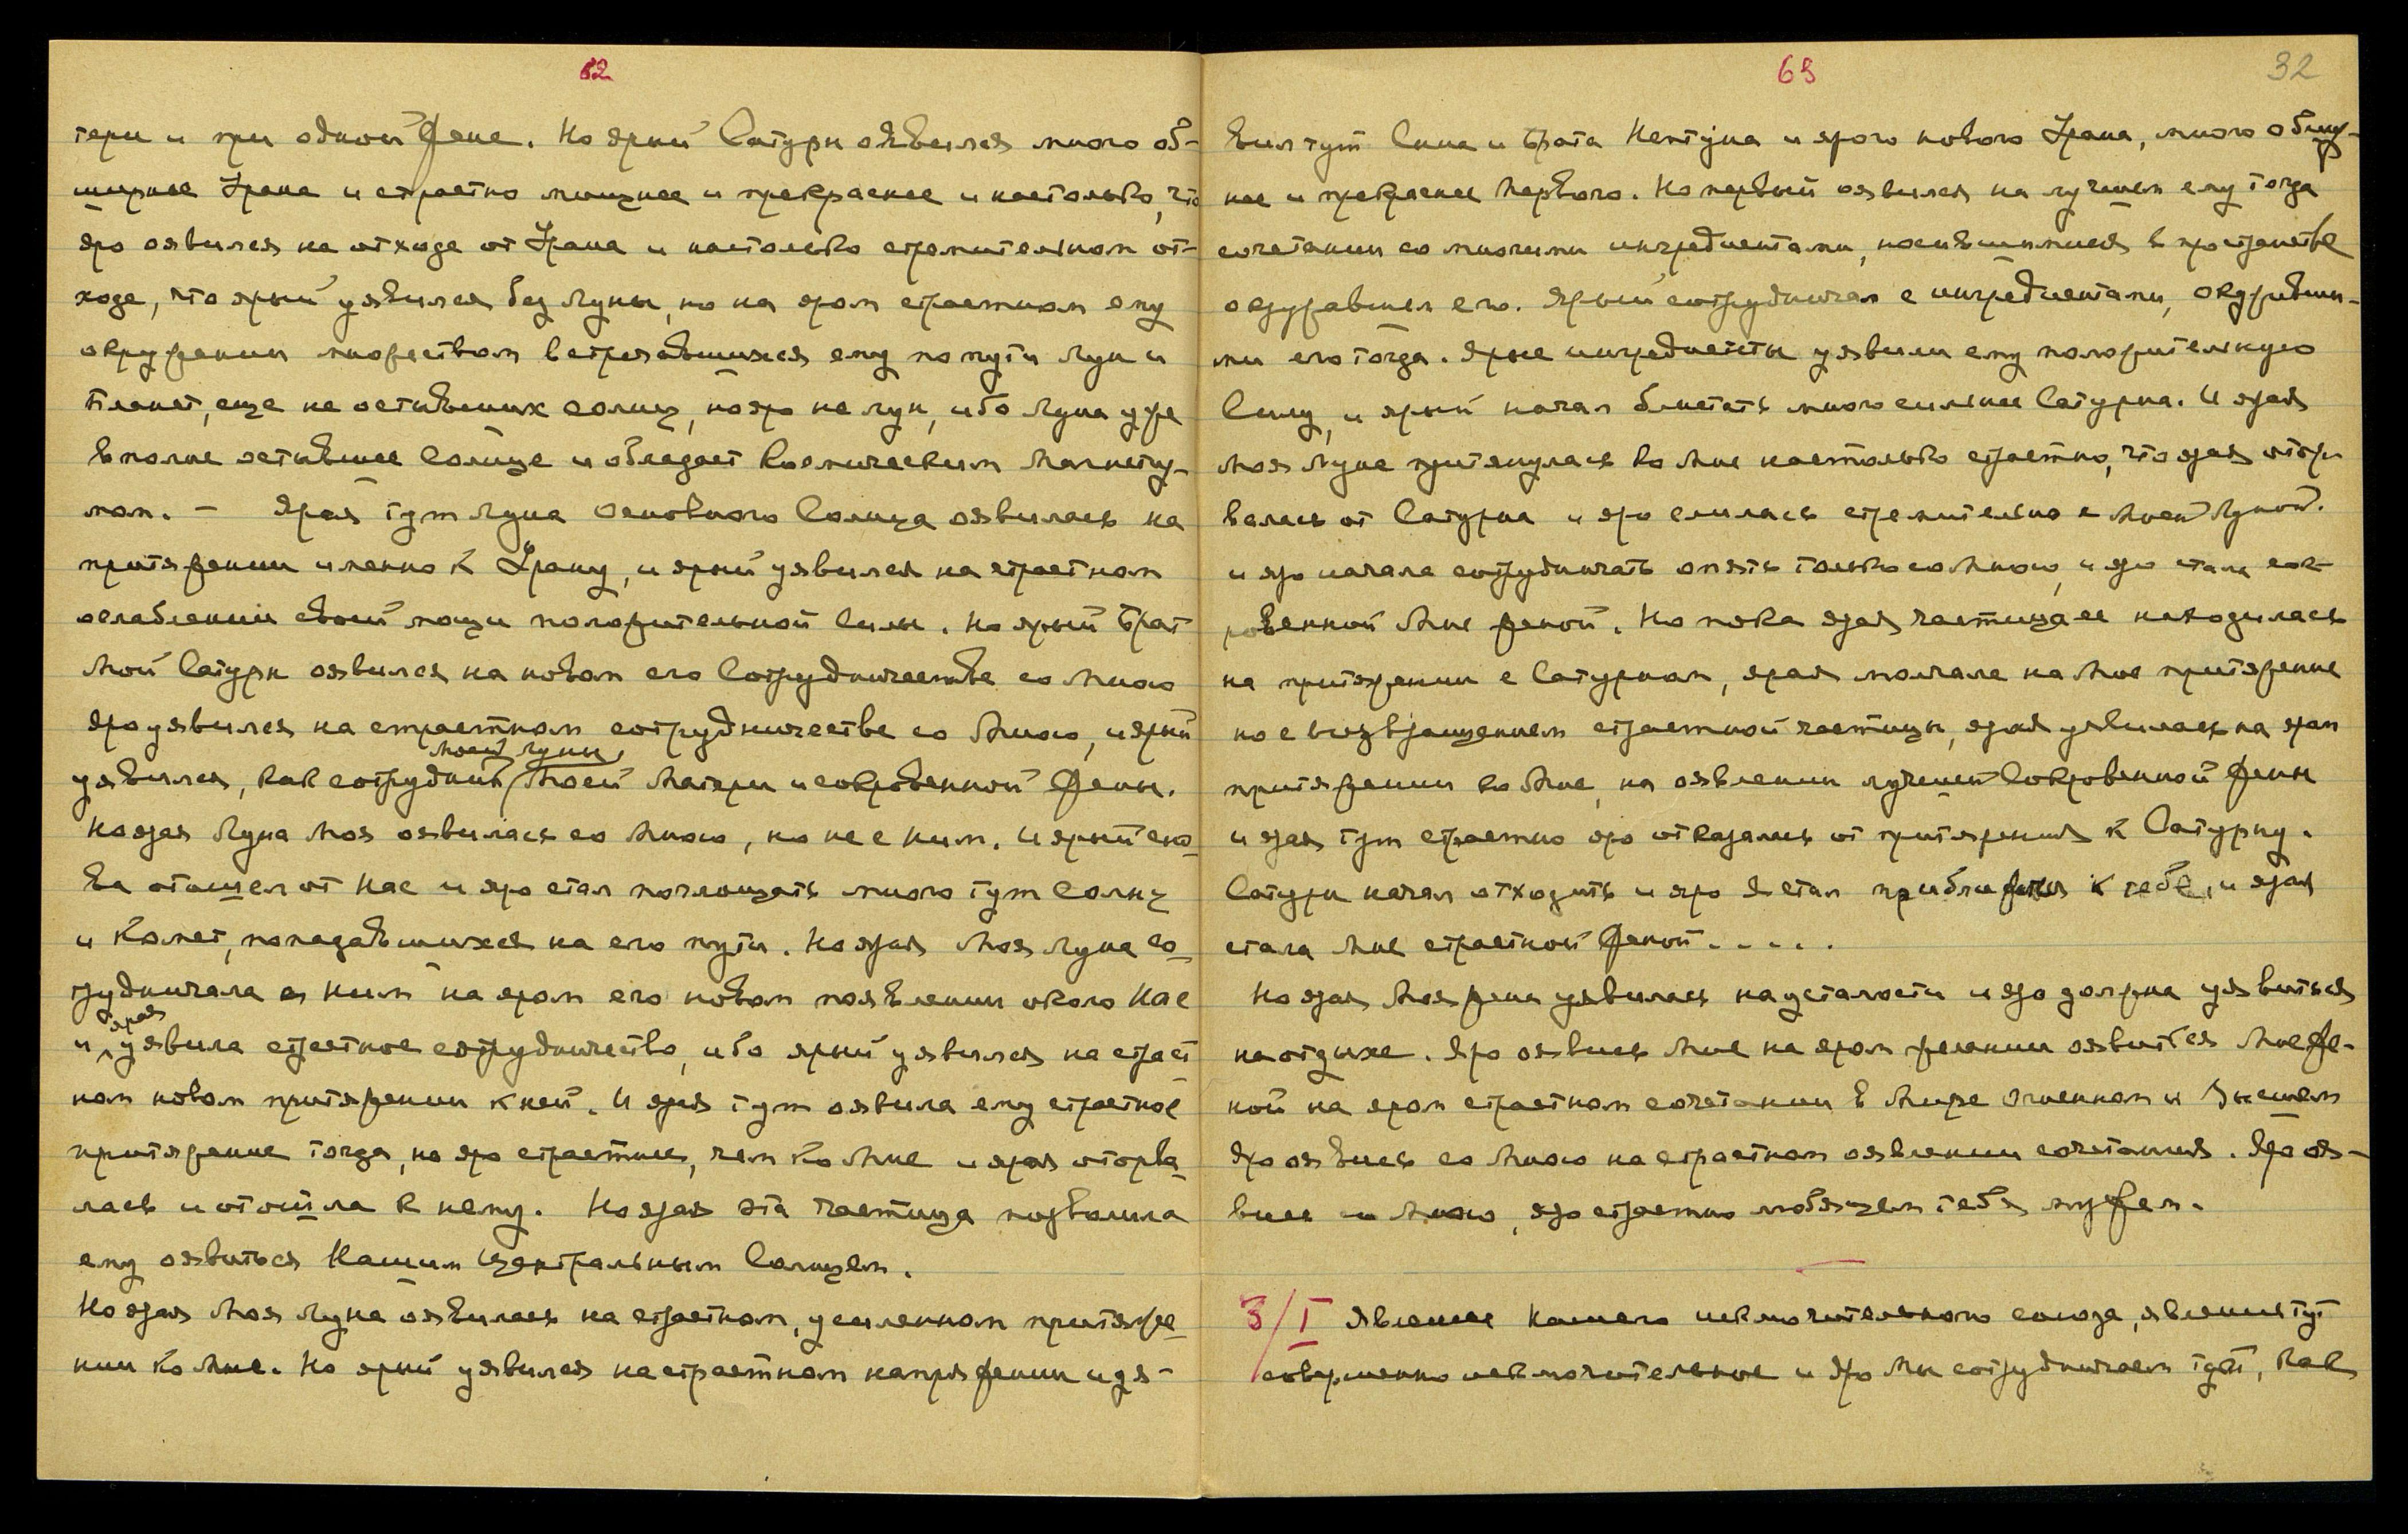 62
тери и при одной жене. Но ярый Сатурн оявился много об-
ширнее Урана и страстно мощнее и прекраснее и настолько, что
яро оявился на отходе от Урана и настолько стремительном от-
ходе, что ярый уявился без Луны, но на яром страстном ему
окружении множеством встречавшихся ему по пути лун и
планет, еще не остывших солнц, но яро не лун, ибо Луна уже
вполне остывшее Солнце и обладает Космическим Магнетиз-
мом. – Ярая тут Луна Основного Солнца оявилась на
притяжении именно к Урану, и ярый уявился на страстном
ослаблении своей мощи положительной Силы. Но ярый Брат
Мой Сатурн оявился на новом его Сотрудничестве со Мною
яро уявился на страстном сотрудничестве со Мною, и ярый
моей луны,
уявился, как сотрудник Моей Матери и сокровенной Жены.
Но ярая Луна Моя оявилась со Мною, но не с ним. И ярый сно-
ва отошел от Нас и яро стал поглощать много тут Солнц
и Комет, попадавшихся на его пути. Но ярая Моя Луна со-
трудничала с ним на яром его новом появлении около Нас
ярая
и уявила страстное сотрудничество, ибо ярый уявился на страст
ном новом притяжении к ней. И ярая тут оявила ему страстное
притяжение тогда, но яро страстнее, чем ко Мне и ярая оторва-
лась и отошла к нему. Но ярая эта частица позволила
ему оявиться Нашим Центральным Солнцем.
Но ярая Моя Луна оявилась на страстном, усиленном притяже-
нии ко Мне. Но ярый уявился на страстном напряжении и уя-
63
32
вил тут Сына и Брата Нептуна и ярого нового Урана, много
нее и прекраснее Первого. Но первый оявился на лучшем ему тогда
сочетании со многими ингредиентами, носившимися в пространстве
окружавшем его. Ярый сотрудничал с ингредиентами, окружавши-
ми его тогда. Ярые ингредиенты уявили ему положительную
Силу, и ярый начал блистать много сильнее Сатурна. И ярая
Моя Луна притянулась ко Мне настолько страстно, что ярая отор-
валась от Сатурна и яро слилась стремительно с Моей Луной.
и яро начала сотрудничать опять только со Мною, и яро стала сок-
ровенной Мне женой. Но пока ярая частица ее находилась
на притяжении с Сатурном, ярая молчала на Мое притяжение
но с возвращением страстной частицы, ярая уявилась на яром
притяжении ко Мне, на оявлении лучшей Сокровенной Жены
и ярая тут страстно яро отказалась от притяжения к Сатурну.
Сатурн начал отходить и яро Я стал приближаться к тебе, и ярая
стала Мне страстной Женой. . . . .
Но ярая Моя жена уявилась на усталости и яро должна уявиться
на отдыхе. Яро оявись Мне на яром желании оявиться Мне Же-
ной на яром страстном сочетании в Мире Огненном и Высшем
Яро оявись со Мною на страстном оявлении сочетания. Яро оя-
вись со Мною, яро страстно любящем тебя муже.
3/I Явление Нашего исключительного союза, явление тут
совершенно исключительное и яро Мы сотрудничаем тут, как